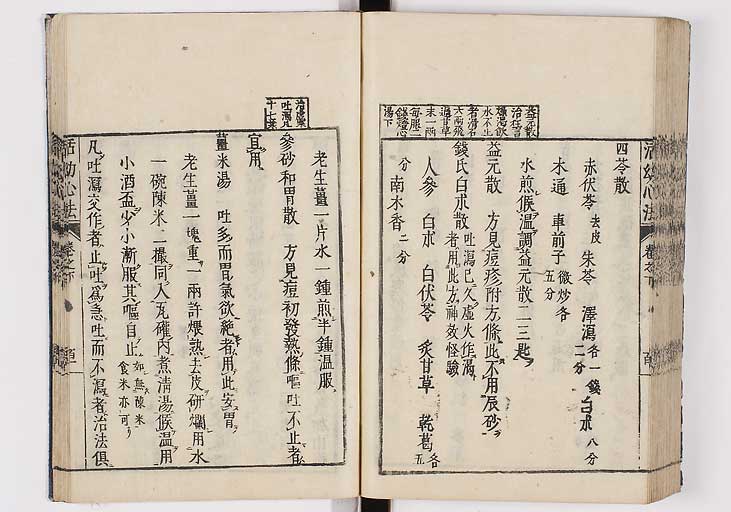 活幼心法 卷之下
益元散
治狂言
煩渴飲
水不止
者滑石
六兩飛
過甘草
末一兩
每服二
錢燈心
湯下
四苓散
赤茯苓去皮 朱苓 澤瀉各一錢二分 白朮八分
木通 車前子微炒各五分
水煎候溫調益元散二三匙
益元散 方見痘疹附方條此不用辰砂
錢氏白朮散 吐瀉已久虛火作瀉者用此方神效怪驗
人參 白朮 白茯苓 炙甘草 乾葛各五
分 南木香二分
治虛寒
吐瀉凡
十七葉
老生薑一片水一鍾煎半鍾溫服
參砂和胃散 方見痘初發熱條嘔吐不止者
宜用
薑米湯 吐多而胃氣欲絶者用此安胃
老生薑一塊重一兩許煨熟去皮研爛用水
一碗陳米二撮同入瓦礶內煮清湯候溫用
小酒盃少小漸服其嘔自止如無陳米食米亦可
凡吐瀉交作者止吐爲急吐而不瀉者治法俱
活幼心法 卷之下